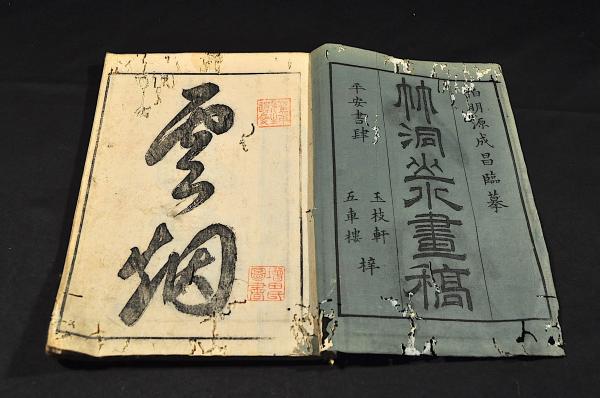 明源成昌臨摹
竹洞山水畫稿
平安書肆
玉枝軒
五車樓
梓
雲烟